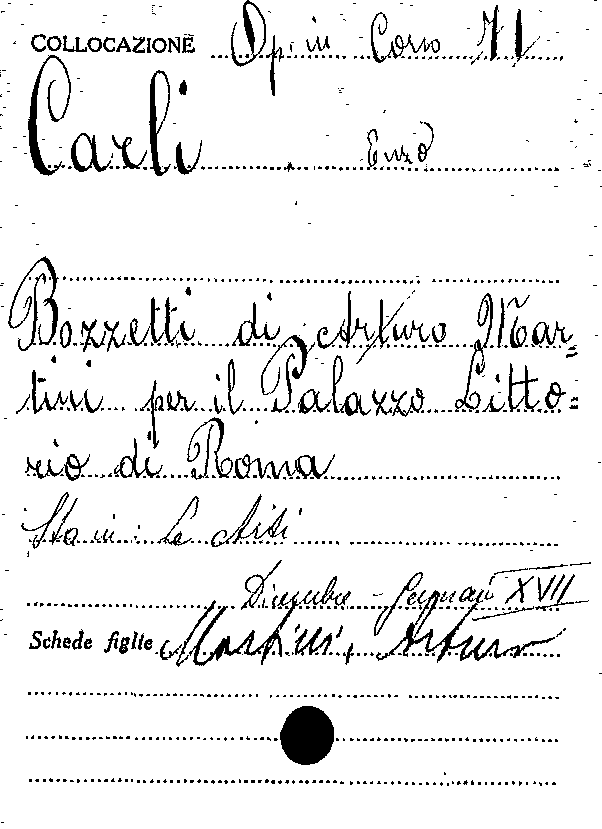 COLLOCAZIONE Op. in Corso 71
Carli Enzo
Bozzetti di Arturo Mar=
tini per il Palazzo Litto=
rio di Roma
Sta in: Le Arti
Dicembre - Gennaio XVII
Schede figlie Martini, Arturo